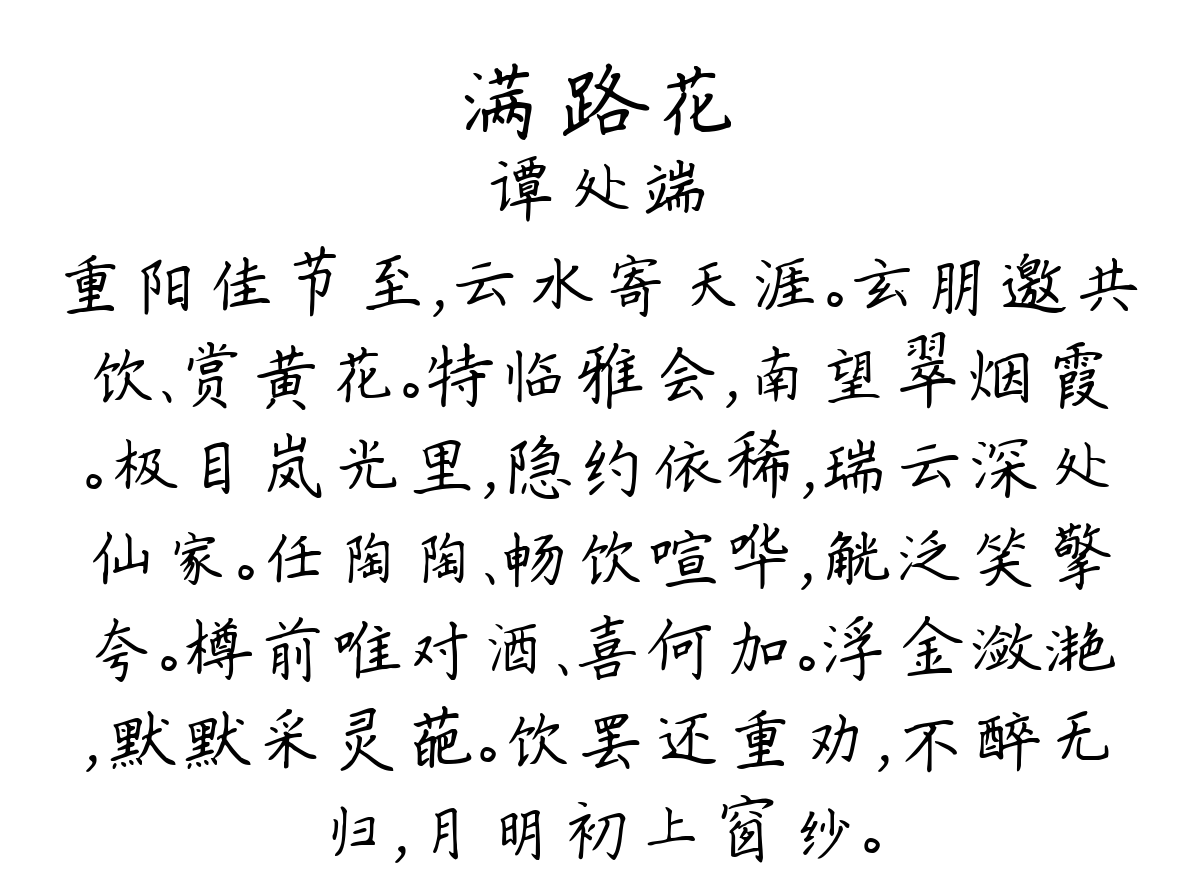 满路花
谭处端
重阳佳节至,云水寄天涯。玄朋邀共
饮、赏黄花。特临雅会,南望翠烟霞
。极目岚光里,隐约依稀,瑞云深处
仙家。任陶陶、畅饮喧哗,觥泛笑擎
夸。樽前唯对酒、喜何加。浮金潋滟
,默默采灵葩。饮罢还重劝,不醉无
归,月明初上窗纱。